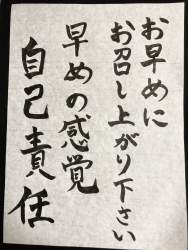 お早めに
お召し上がり下さい
早めの感覚
自己責任